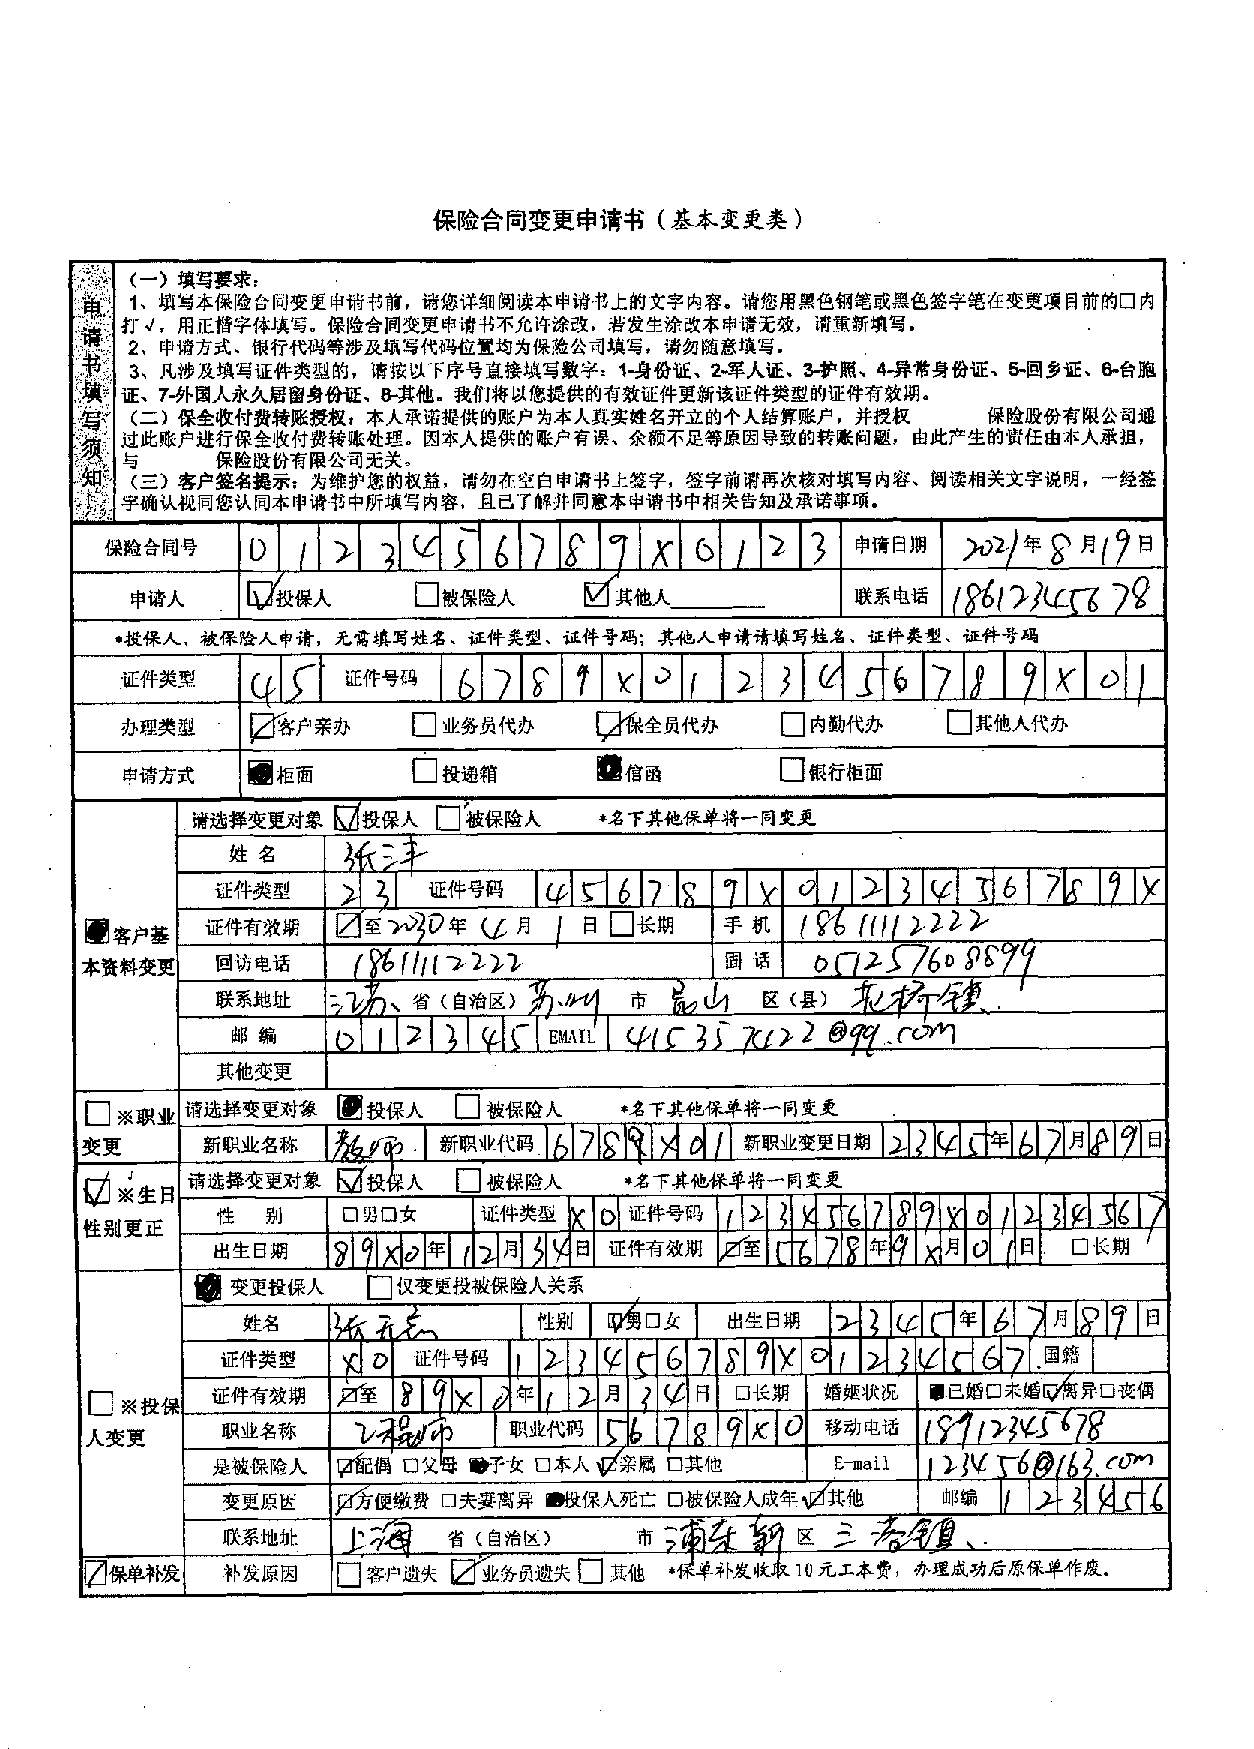 保险合同变更申请书（基本变更类）
申请书填写须知
（一）填写要求：
1、填写本保险合同变更申请书前，请您详细阅读本申请书上的文字内容。请您用黑色钢笔或黑色签字笔在变更项目前的□内
打√，用正楷字体填写。保险合同变更申请书不允许涂改，若发生涂改本申请无效，请重新填写。
2、申请方式、银行代码等涉及填写代码位置均为保险公司填写，请勿随意填写。
3、凡涉及填写证件类型的，请按以下序号直接填写数字：1-身份证、2-军人证、3-护照、4-异常身份证、5-回乡证、6-台胞
证、7-外国人永久居留身份证、8-其他。我们将以您提供的有效证件更新该证件类型的证件有效期。
（二）保全收付费转账授权：本人承诺提供的账户为本人真实姓名开立的个人结算账户，并授权 保险股份有限公司通
过此账户进行保全收付费转账处理。因本人提供的账户有误、余额不足等原因导致的转账问题，由此产生的责任由本人承担，
与 保险股份有限公司无关。
（三）客户签名提示：为维护您的权益，请勿在空白申请书上签字，签字前请再次核对填写内容、阅读相关文字说明，一经签
字确认视同您认同本申请书中所填写内容，且已了解并同意本申请书中相关告知及承诺事项。
保险合同号 0123456789X0123 申请日期 2021年8月19日
申请人 ☑投保人 □被保险人 ☑其他人________ 联系电话 18612345678
*投保人、被保险人申请，无需填写姓名、证件类型、证件号码；其他人申请请填写姓名、证件类型、证件号码
证件类型 45 证件号码 6789X0123456789X01
办理类型 ☑客户亲办 □业务员代办 ☑保全员代办 □内勤代办 □其他人代办
申请方式 ■柜面 □投递箱 ■信函 □银行柜面
■客户基本资料变更
请选择变更对象 ☑投保人 □被保险人 *名下其他保单将一同变更
姓名 张三丰
证件类型 23 证件号码 456789X0123456789X
证件有效期 ☑至2030年4月1日 □长期 手机 18611112222
回访电话 18611112222 固话 051257608899
联系地址 江苏 省（自治区）苏州 市 昆山 区（县） 花桥镇
邮编 012345 EMAIL 415357422@qq.com
其他变更
□※职业变更
请选择变更对象 ■投保人 □被保险人 *名下其他保单将一同变更
新职业名称 教师 新职业代码 6789X01 新职业变更日期 2345年67月89日
☑※生日性别更正
请选择变更对象 ☑投保人 □被保险人 *名下其他保单将一同变更
性别 □男□女 证件类型 X0 证件号码 123456789X01234567
出生日期 89X0年12月34日 证件有效期 ☑至5678年9X月01日 □长期
□※投保人变更
■变更投保人 □仅变更投被保险人关系
姓名 张无忌 性别 ☑男□女 出生日期 2345年67月89日
证件类型 X0 证件号码 123456789X01234567 国籍
证件有效期 ☑至89X0年12月34日 □长期 婚姻状况 ■已婚□未婚☑离异□丧偶
职业名称 工程师 职业代码 56789X0 移动电话 18912345678
是被保险人 ☑配偶 □父母 ■子女 □本人 ☑亲属 □其他 E-mail 123456@163.com
变更原因 ☑方便缴费 □夫妻离异 ■投保人死亡 □被保险人成年 ☑其他 邮编 123456
联系地址 上海 省（自治区） 市 浦东新 区 三 镇
☑保单补发 补发原因 □客户遗失 ☑业务员遗失 □其他 *保单补发收取10元工本费，办理成功后原保单作废。